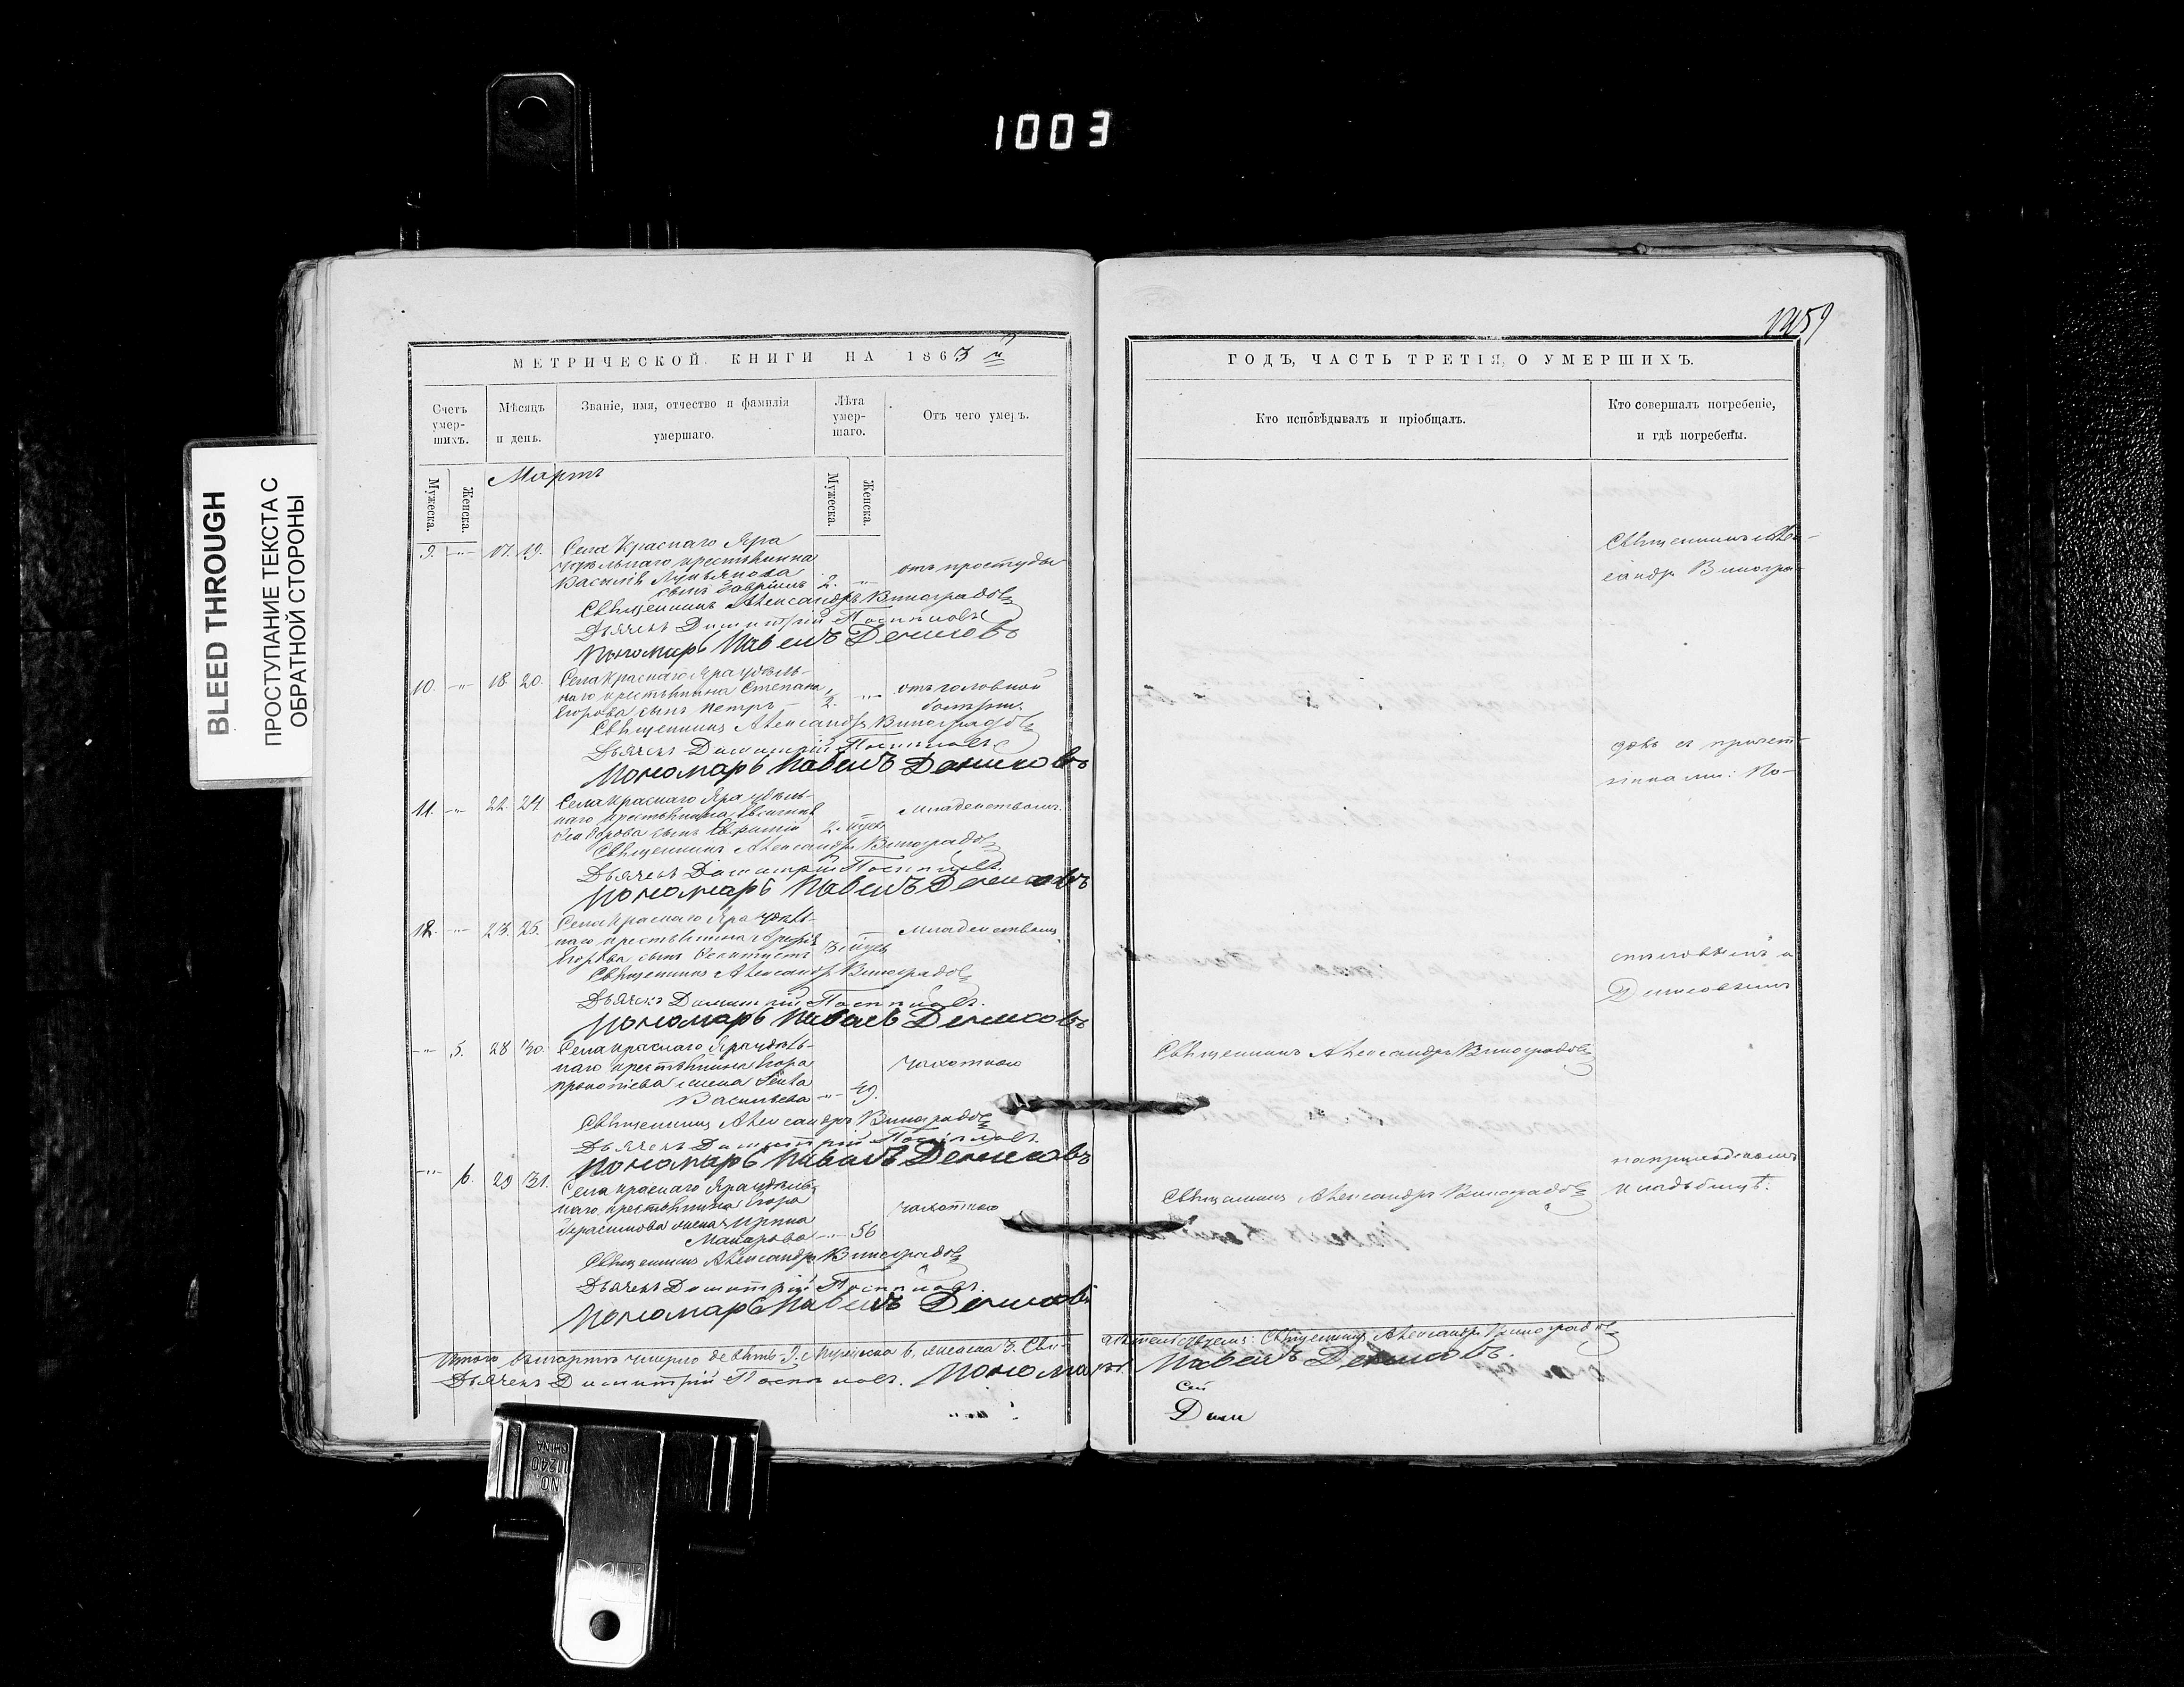 1003
BLEED THROUGH
ПРОСТУПАНИЕ ТЕКСТА С
ОБРАТНОЙ СТОРОНЫ
МЕТРИЧЕСКОЙ КНИГИ НА 1863 й
Счетъ умер-шихъ.
Мѣсяцъ и день.
Званіе, имя, отчество и фамилія умершаго.
Лѣта умер-шаго.
Отъ чего умеръ.
Мужеска. Женска.
Мартъ
Мужеска. Женска.
9. -"- 17. 19. Села Краснаго Яра
удѣльнаго крестьянина
Василія Лукьянова
сынъ Гавріилъ 2. " отъ простуды
Священникъ Александръ Виноградовъ
Дьячекъ Димитрій Поспѣловъ
Пономарь Павелъ Денисовъ
10. -"- 18. 20. Села Краснаго Яра удѣль-
наго крестьянина Степана
Егорова сынъ Петръ 2. " отъ головной
болѣзни.
Священникъ Александръ Виноградовъ
Дьячекъ Димитрій Поспѣловъ
Пономарь Павелъ Денисовъ
11. -"- 22. 24. Села Краснаго Яра удѣль-
наго крестьянина
сынъ 2. нед. младенствомъ.
Священникъ Александръ Виноградовъ
Дьячекъ Димитрій Поспѣловъ.
Пономарь Павелъ Денисовъ
12. -"- 23. 25. Села Краснаго Яра удѣль-
наго крестьянина
Егорова сынъ 3. нед. младенствомъ
Священникъ Александръ Виноградовъ
Дьячекъ Димитрій Поспѣловъ.
Пономарь Павелъ Денисовъ
-"- 5. 28 30. Села Краснаго Яра удѣль-
наго крестьянина Егора
Прокопіева жена
Васильева -"- 49. чахоткою
Священникъ Александръ Виноградовъ
Дьячекъ Димитрій Поспѣловъ.
Пономарь Павелъ Денисовъ
-"- 6. 29 31. Села Краснаго Яра удѣль-
наго крестьянина Егора
Герасимова жена Ирина
Макарова -"- 56 чахоткою
Священникъ Александръ Виноградовъ
Дьячекъ Димитрій Поспѣловъ.
Пономарь Павелъ Денисовъ
Итого въ мартѣ умерло девять-9. Мужеска 6, женска 3. Сви-
дѣтельствуемъ: Священникъ Александръ Виноградовъ
Дьячекъ Димитрій Поспѣловъ. Пономарь Павелъ Денисовъ.
ГОДЪ, ЧАСТЬ ТРЕТІЯ, О УМЕРШИХЪ.
Кто исповѣдывалъ и пріобщалъ.
Кто совершалъ погребеніе,
и гдѣ погребены.
Священникъ Алек-
сандръ Виногра-
довъ съ причет-
никами: По-
спѣловымъ и
Денисовымъ
Священникъ Александръ Виноградовъ
на приходскомъ
Священникъ Александръ Виноградовъ
кладбищѣ.